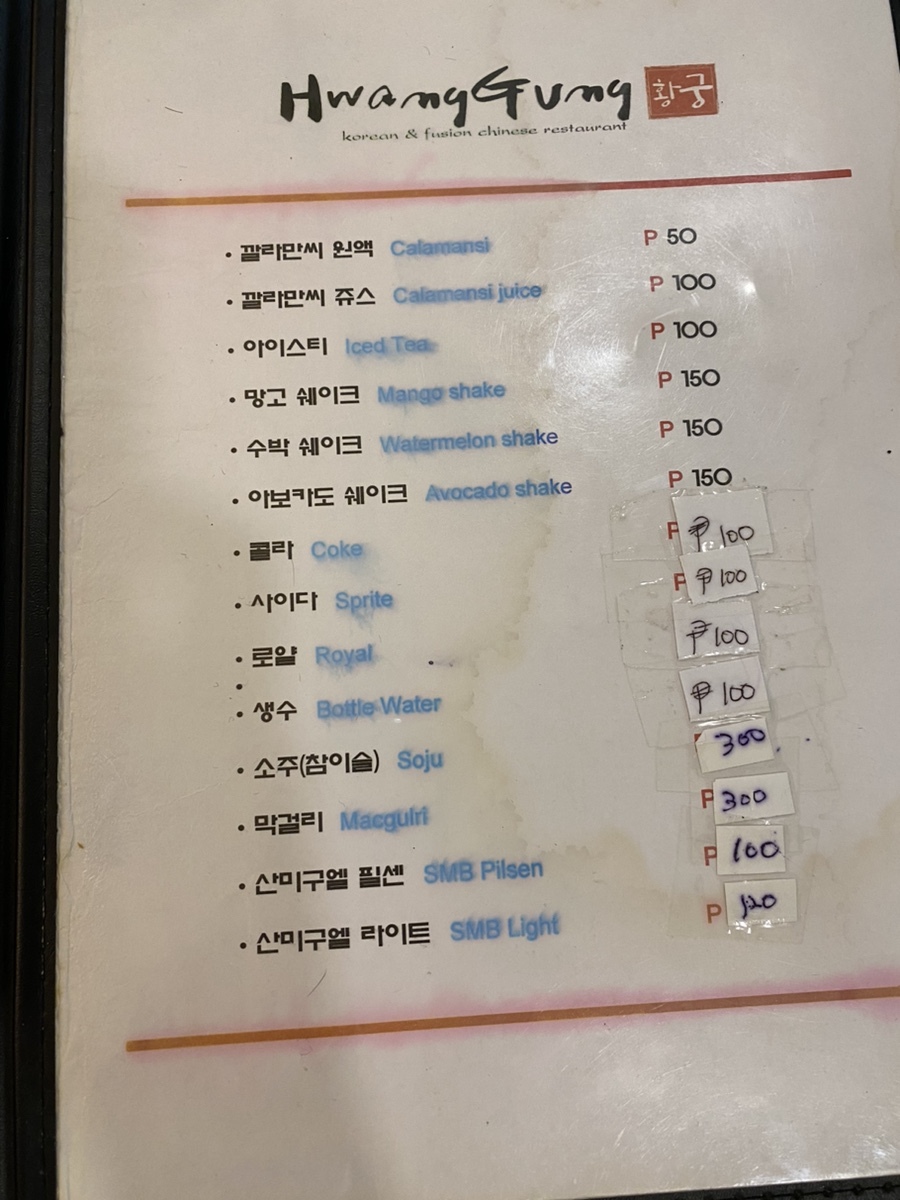 HwangGung 황궁
korean & fusion chinese restaurant
• 깔라만씨 원액 Calamansi P 50
• 깔라만씨 쥬스 Calamansi juice P 100
• 아이스티 Iced Tea P 100
• 망고 쉐이크 Mango shake P 150
• 수박 쉐이크 Watermelon shake P 150
• 아보카도 쉐이크 Avocado shake P 150
• 콜라 Coke P ₱100
• 사이다 Sprite P ₱100
• 로얄 Royal ₱100
•
• 생수 Bottle Water ₱100
• 소주(참이슬) Soju 300
• 막걸리 Macgulri P 300
• 산미구엘 필센 SMB Pilsen P 100
• 산미구엘 라이트 SMB Light P 120